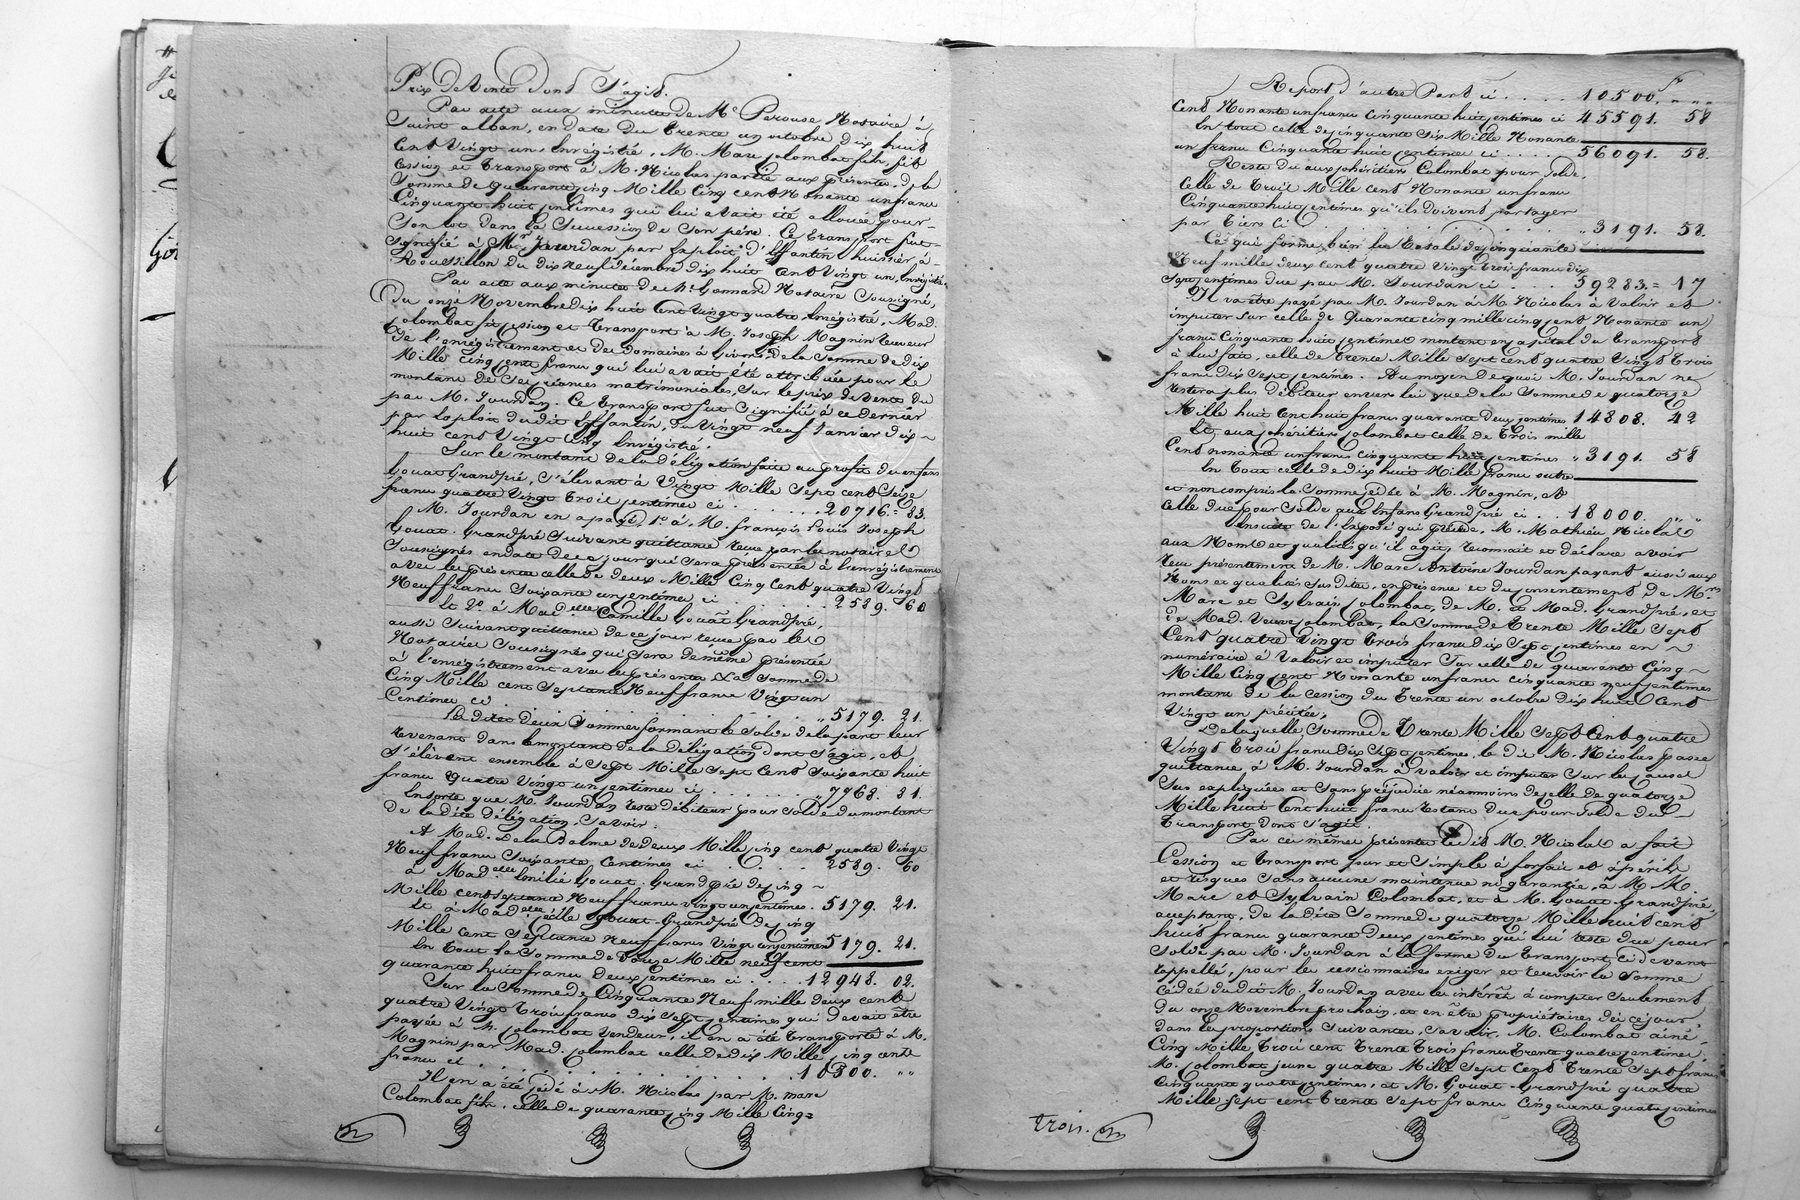 Prix de Vente dont s'agit.
Par acte aux minutes de Me Perouse Notaire à
Saint alban, en date du trente un octobre dix huit
Cent Vingt un, Enrégistré, M. Marc Colombat fils, fit
Cession et transport à M. Nicolas partie aux présentes, de la
Somme de quarante cinq Mille Cinq cent Nonante un francs
Cinquante huit centimes qui lui avait été allouée pour
Son lot dans la Succession de Son père. Ce transport fut
Signifié à Mr. Jourdan par Exploit d'Effantin huissier à
Roussillon du dix neuf décembre dix huit Cent Vingt un, Enrégistré
Par acte aux minutes de Me Gonnard Notaire Sousigné,
du onze Novembre dix huit Cent Vingt quatre Enrégistré, Mad.
Colombat fit cession et transport à M. Joseph Magnin Receveur
de l'enrégistrement et des domaines à Givors, de la Somme de dix
Mille Cinq cents francs qui lui avait été attribuée pour le
montant de Ses créances matrimoniales, Sur le prix de Vente du
par M. Jourdan. Ce transport fut Signifié à ce dernier
par Exploit dudit Effantin, du Vingt neuf Janvier dix
huit cent Vingt Cinq Enrégistré.
Sur le montant de la délégation faite au profit des enfans
Gouat Grandpré, S'élevant à Vingt Mille Sept cent Seize
francs quatre Vingt trois centimes ci . . . . . . . 20716. = 83.
M. Jourdan en a payé, 1o à, M. françois Louis Joseph
Gouat Grandpré Suivant quittance reçue par les notaires
Sousignés en date de ce jour qui Sera présentée à l'enrégistrement
avec les présentes celle de deux Mille Cinq Cent quatre Vingt
Neuf francs Soixante centimes ci . . . . . . 2589. 60
Et 2o. à Madelle Camille Gouat Grandpré,
aussi Suivant quittance de ce jour reçue par les
Notaires Sousignés qui Sera de même présentée
à l'enrégistrement avec les présentes la Somme de
Cinq Mille cent Septante Neuf francs Vingt un
Centimes ci . . . . . . . . . . . . " 5179. 21.
Les dites deux Sommes formant le Solde de la part leur
revenant dans le montant de la Délégation dont s'agit, et
S'élèvent ensemble à Sept Mille Sept Cent Soixante huit
francs quatre Vingt un centimes ci . . . . . . " 7768. 81.
Ensorte que M. Jourdan reste débiteur pour Solde du montant
de la dite délégation, Savoir :
A Mad. De la Balme de deux Mille cinq cent quatre Vingt
Neuf francs Soixante Centimes ci . . . . . 2589. 60
à Madelle Emilie Gouat Grandpré de cinq
Mille cent Septante Neuf francs Vingt un centimes . 5179. 21.
Et à Madelle Gouat Grandpré de cinq
Mille cent Septante Neuf francs Vingt un centimes 5179. 21.
En tout la Somme de douze Mille neuf cent
quarante huit francs Deux centimes ci . . . . 12948. 02.
Sur la Somme de Cinquante Neuf mille deux cent
quatre Vingt trois francs dix Sept centimes qui devait être
payée à M. Colombat Vendeur, il en a été transporté à M.
Magnin par Mad. Colombat celle de dix Mille cinq cents
francs ci . . . . . . . . . . . . 10500. " "
Il en a été cédé à M. Nicolas par M. Marc
Colombat fils, celle de quarante cinq Mille Cinq
Report d'autre Part ci . . . . 10500.f " "
Cent Nonante un francs Cinquante huit centimes ci 45591. 58
En tout celle de cinquante Six Mille Nonante
un francs Cinquante huit centimes ci . . . . 56091. 58.
Reste du aux cohéritiers Colombat pour Solde,
Celle de trois Mille cent Nonante un francs
Cinquante huit centimes qu'ils doivent partager
par tiers ci . . . . . . . . . . . " 3191. 58.
Ce qui forme bien la totale de cinquante
Neuf mille deux cent quatre Vingt trois francs dix
Sept centimes due par M. Jourdan ci . . . . 59283. = 17
Il va être payé par M. Jourdan à M. Nicolas à Valoir et
imputer Sur celle de Quarante cinq mille cinq cent Nonante un
francs Cinquante huit centimes montant en capital du transport
à lui fait, celle de trente Mille Sept Cent quatre Vingt trois
francs dix Sept centimes. Au moyen de quoi M. Jourdan ne
restera plus débiteur envers lui que de la Somme de quatorze
Mille huit Cent huit francs quarante deux centimes 14808. 42
Et aux cohéritiers Colombat celle de trois mille
Cent nonante un francs cinquante huit centimes " 3191. 58
En tout celle de dix huit Mille francs outre
et non compris la Somme cédée à M. Magnin, et
Celle due pour Solde aux Enfans Grandpré ci . . 18000. " "
Ensuite de l'Exposé qui précède, M. Mathieu Nicolas
aux Noms et qualités qu'il agit, reconnait et déclare avoir
reçu présentement de M. Marc Antoine Jourdan payant aussi aux
Noms et qualités Sus dits, en présence et du consentement de Mrs.
Marc et Sylvain Colombat, de M. et Mad. Grandpré, et
de Mad. Veuve Colombat, la Somme de trente Mille Sept
Cent quatre Vingt trois francs dix Sept centimes en
numéraire à Valoir et imputer Sur celle de quarante Cinq
Mille Cinq cent Nonante un francs cinquante neuf centimes
montant de la cession du trente un octobre dix huit Cent
Vingt un précitée.
De laquelle Somme de trente Mille Sept Cent quatre
Vingt trois francs dix Sept centimes, le dit M. Nicolas passe
quittance à M. Jourdan à valoir et imputer Sur les causes
Sus expliquées et Sans préjudice néanmoins de celle de quatorze
Mille huit Cent huit francs restant due pour Solde du
transport dont s'agit.
Par ces mêmes présentes ledit M. Nicolas a fait
Cession et transport pur et Simple à forfait et à périls
et risques Sans aucune maintenue ni garantie, à M.M.
Marc et Sylvain Colombat, et à M. Gouat Grandpré,
acceptant, de la dite Somme de quatorze Mille huit cent
huit francs quarante deux centimes qui lui reste due pour
Solde par M. Jourdan à la forme du transport ci devant
rappellé, pour les cessionnaires exiger et recevoir la Somme
cédée dudit M. Jourdan avec les intérêts à compter Seulement
du onze Novembre prochain, et en être propriétaires dès ce jour
dans les proportions Suivantes, Savoir : M. Colombat ainé
Cinq Mille trois cent trente trois francs trente quatre centimes,
M. Colombat jeune quatre Mille Sept Cent trente Sept francs
Cinquante quatre centimes, et M. Gouat Grandpré quatre
Mille Sept cent trente Sept francs Cinquante quatre centimes
trois.